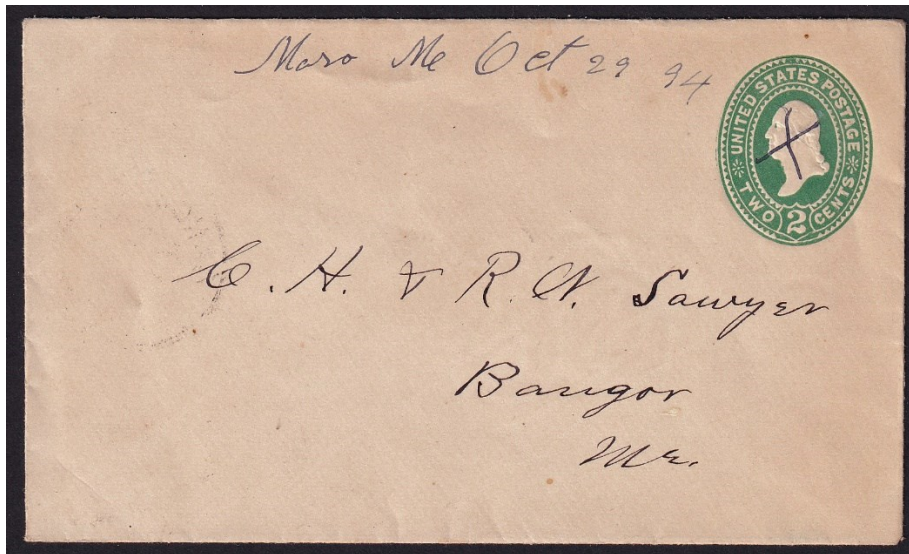 Moro Me Oct 29 94
UNITED STATES POSTAGE
TWO 2 CENTS
C. H. & R. N. Sawyer
Bangor
Me.